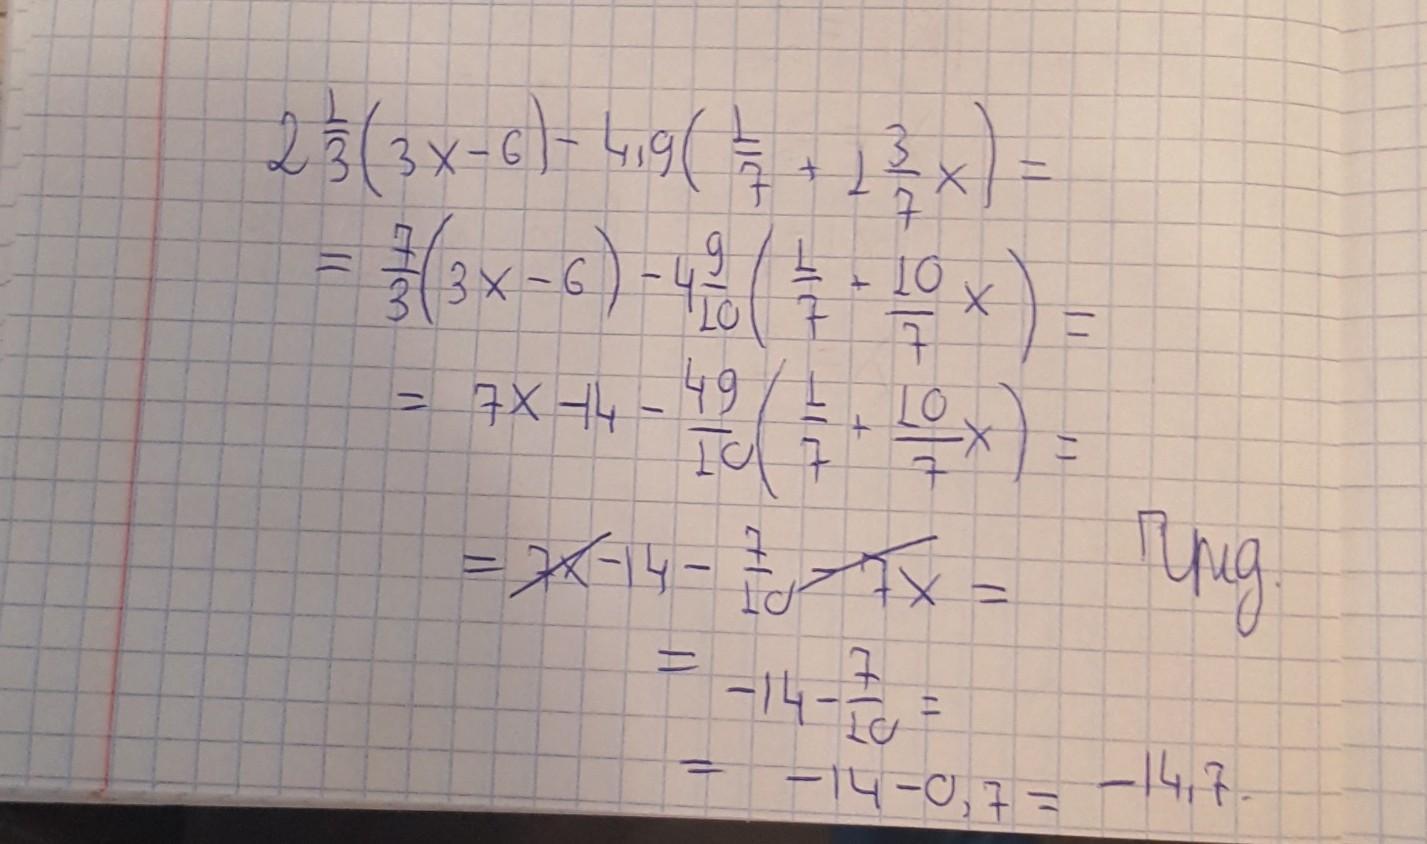 2 1/3 (3x - 6) - 4,9 (1/7 + 1 3/7 x) =
= 7/3 (3x - 6) - 4 9/10 (1/7 + 10/7 x) =
= 7x - 14 - 49/10 (1/7 + 10/7 x) =
= 7x - 14 - 7/10 - 7x =
= -14 - 7/10 =
= -14 - 0,7 = -14,7.